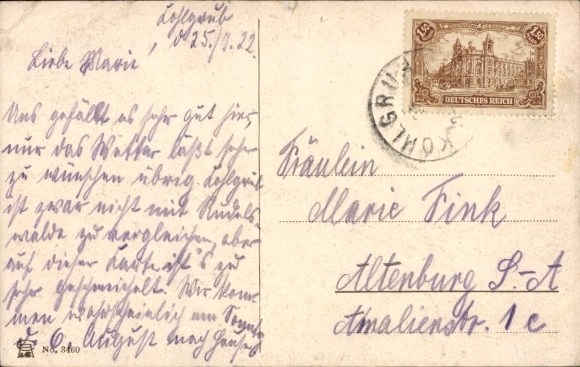 Kohlgrub
d. 25./7.22
Liebe Marie!
Uns gefällt es sehr gut hier,
nur das Wetter läßt sehr
zu wünschen übrig. Kohlgrub
ist zwar nicht mit Rudels-
walde zu vergleichen, aber
auf dieser Karte ist's zu
sehr geschmeichelt. Wir kom-
men wahrscheinlich am Sonntag
d. 6. August nach Hause.
No. 3460
1,50 1,50
DEUTSCHES REICH
KOHLGRUB
Fräulein
Marie Fink
Altenburg S.-A
Amalienstr. 1 c